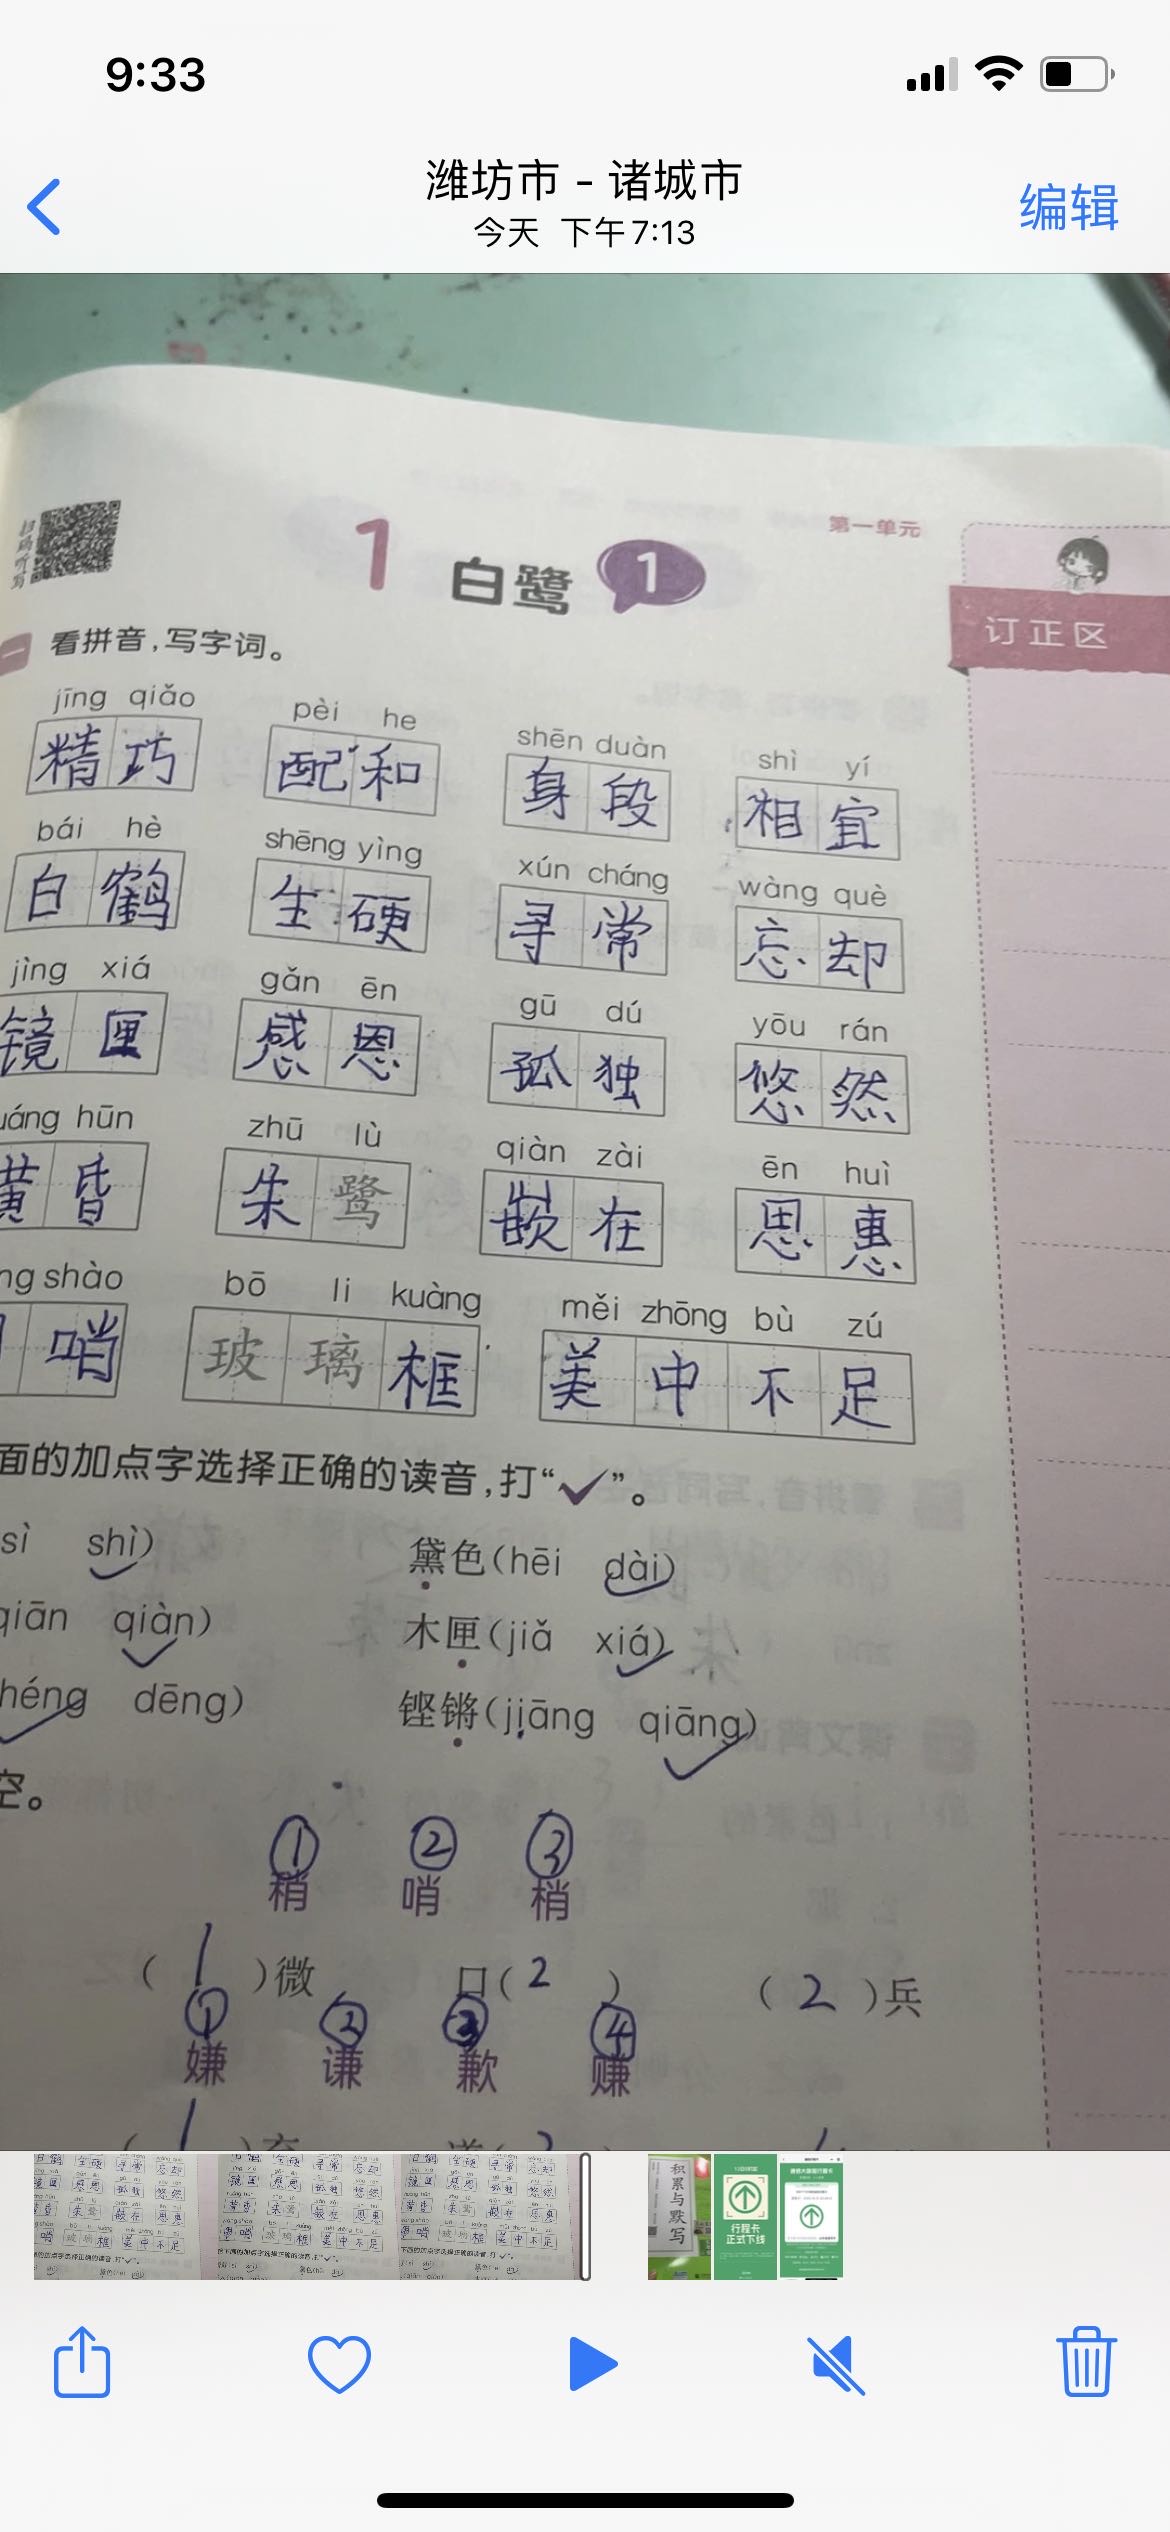 9:33
潍坊市 - 诸城市
今天 下午7:13
编辑
扫码听写
第一单元
1 白鹭 1
订正区
一 看拼音,写字词。
jīng qiǎo pèi he shēn duàn shì yí
精巧 配和 身段 相宜
bái hè shēng yìng xún cháng wàng què
白鹤 生硬 寻常 忘却
jìng xiá gǎn ēn gū dú yōu rán
镜匣 感恩 孤独 悠然
uáng hūn zhū lù qiàn zài ēn huì
黄昏 朱鹭 嵌在 思惠
ng shào bō li kuàng měi zhōng bù zú
哨 玻璃框 美中不足
面的加点字选择正确的读音,打“✓”。
sì shì) 黛色(hēi dài)
qiān qiàn) 木匣(jiǎ xiá)
héng dēng) 铿锵(jiāng qiāng)
空。
① ② ③
稍 哨 梢
(1)微 口(2) (2)兵
① ② ③ ④
嫌 谦 歉 赚
积累与默写
行程卡
正式下线